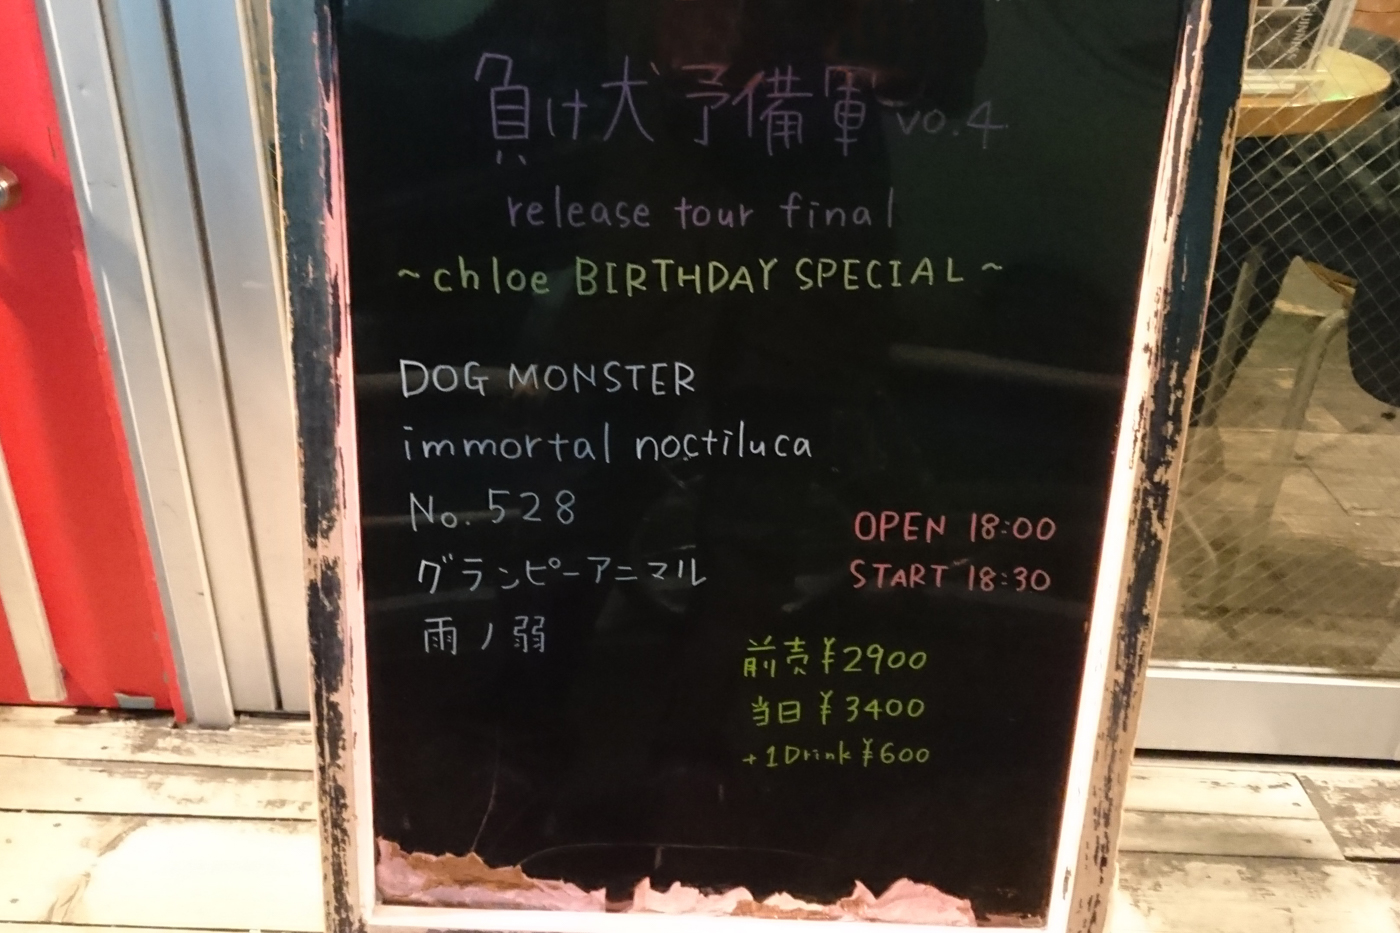 負け犬予備軍 vo.4
release tour final
~chloe BIRTHDAY SPECIAL~
DOG MONSTER
immortal noctiluca
No.528
グランピーアニマル
雨ノ弱
OPEN 18:00
START 18:30
前売¥2900
当日¥3400
+1Drink¥600